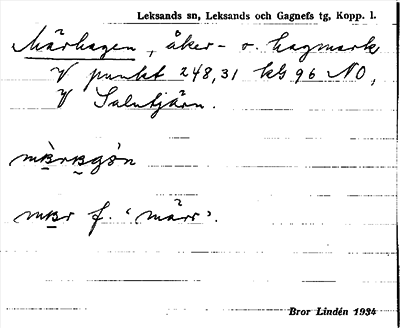 Leksands sn, Leksands och Gagnefs tg, Kopp. l.
Märhagen, åker- o. hagmark
V punkt 248,31 kbl 96 NO,
V Saluntjärn.
f. 'märr'.
Bror Lindén 1934